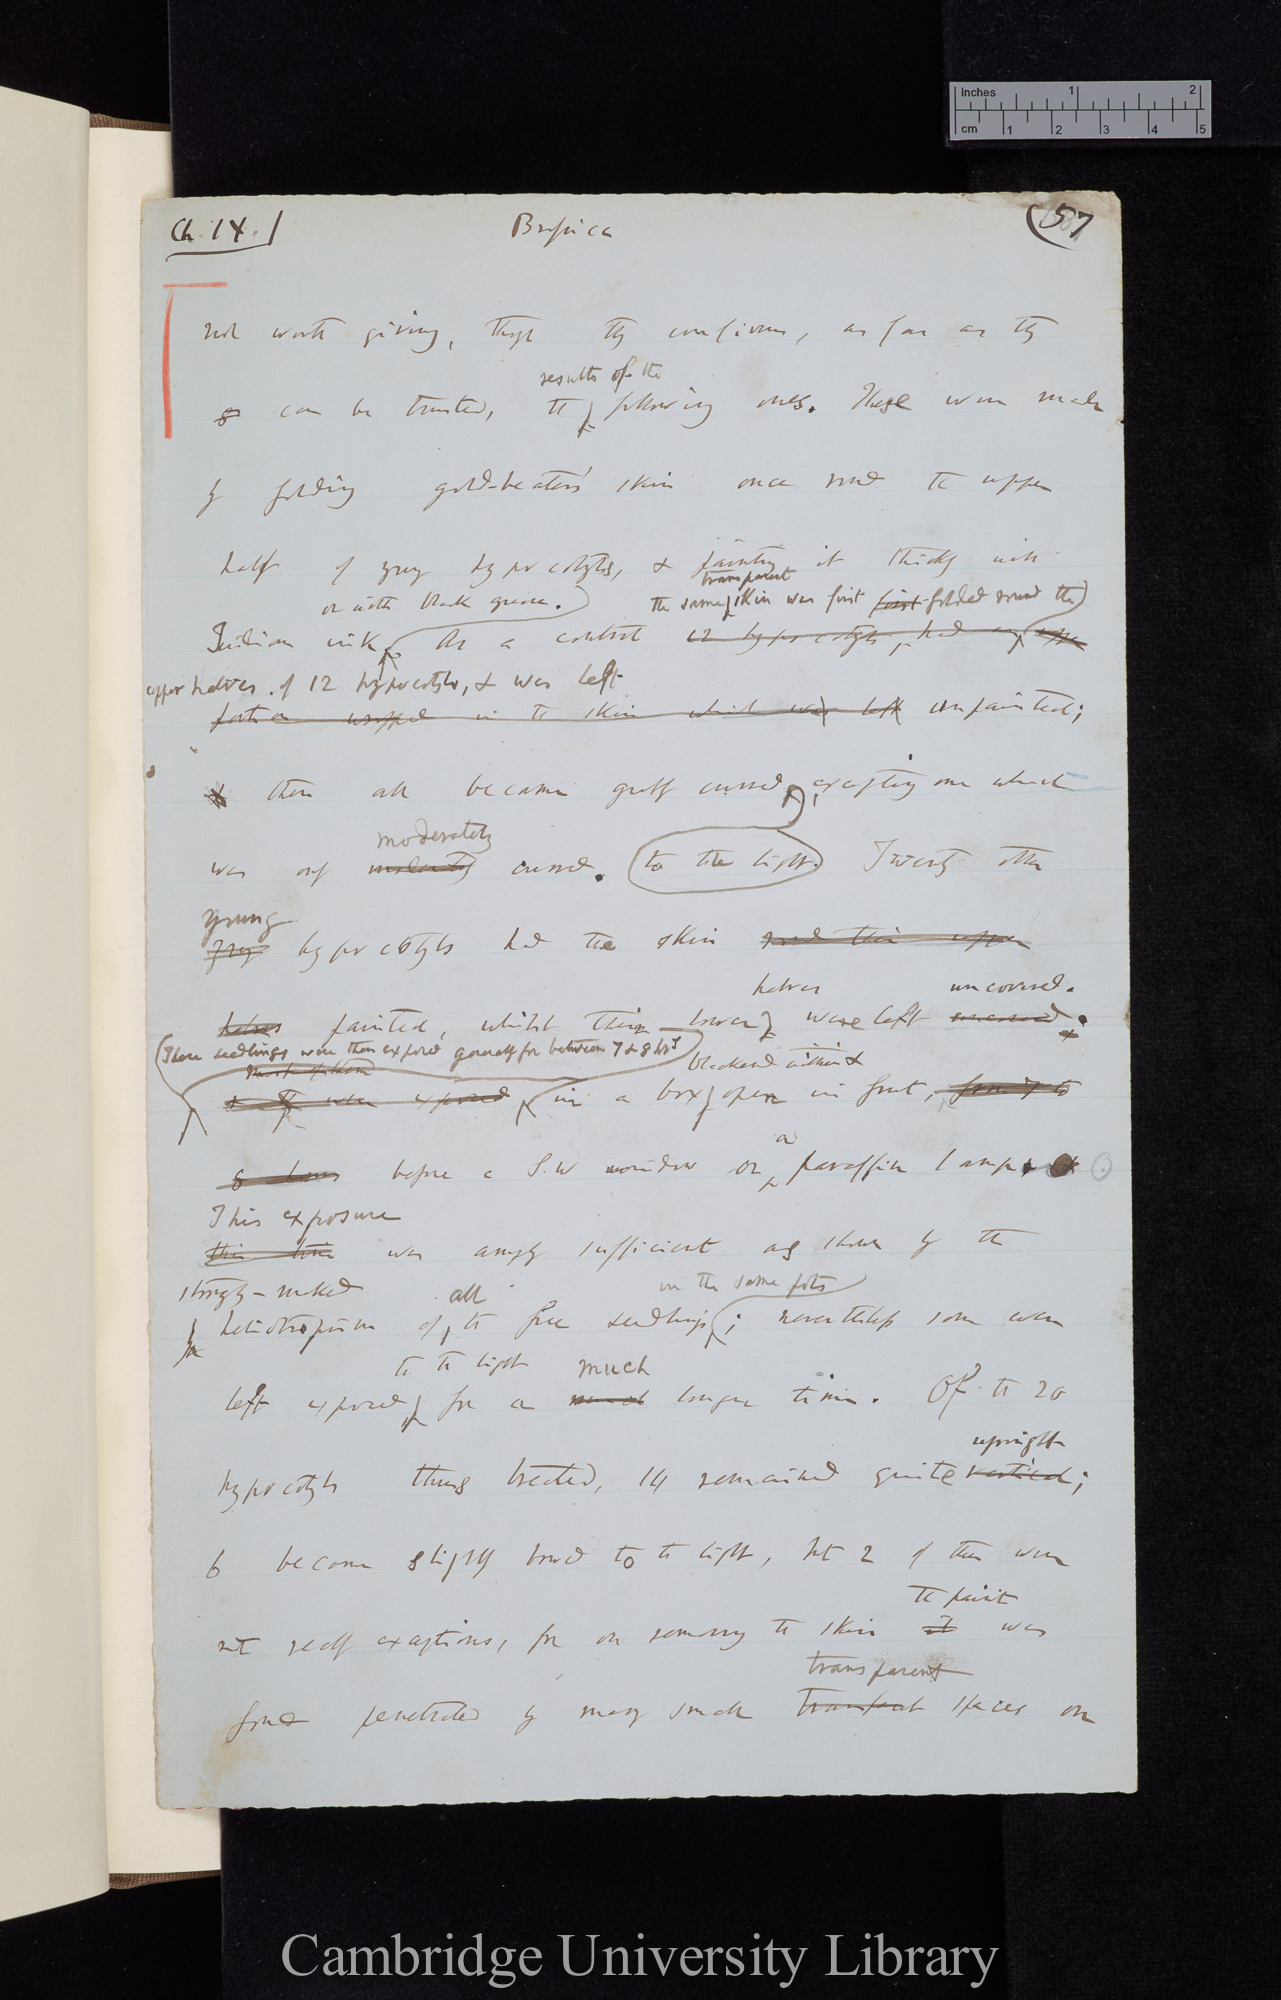 Inches 1 2
cm 1 2 3 4 5
Ch. IX.
Brassica
(57
not worth giving, though they confirm, as far as they
results of the
can be trusted, the following ones. These were made
by folding gold-beaters' skin once round the upper
half of young hypocotyls, & painting it thickly with
transparent
or with black grease. the same skin was first first folded round the
Indian ink. As a control 12 hypocotyls, had
upper halves of 12 hypocotyls, & was left
portion wrapped in the skin which was left unpainted;
& these all became greatly curved, excepting one which
moderately
was only moderately curved. to the light. Twenty other
young
young hypocotyls had the skin round their upper
halves uncovered.
halves painted, whilst their lower were left uncovered.
These seedlings were then exposed generally for between 7 & 8 hrs
Most of them blackened within &
& they were exposed in a box open in front,
8 hours before a S.W window or a paraffin lamp.
This exposure
this time was amply sufficient as shown by the
strongly-marked all in the same pots
heliotropism of the free seedlings; nevertheless some were
to the light much
left exposed for a much longer time. Of the 20
upright
hypocotyls thus treated, 14 remained quite vertical;
6 became slightly bowed to the light, but 2 of these were
the paint
not really exceptions, for on removing the skin it was
transparent
found penetrated by many small transparent spaces on
Cambridge University Library